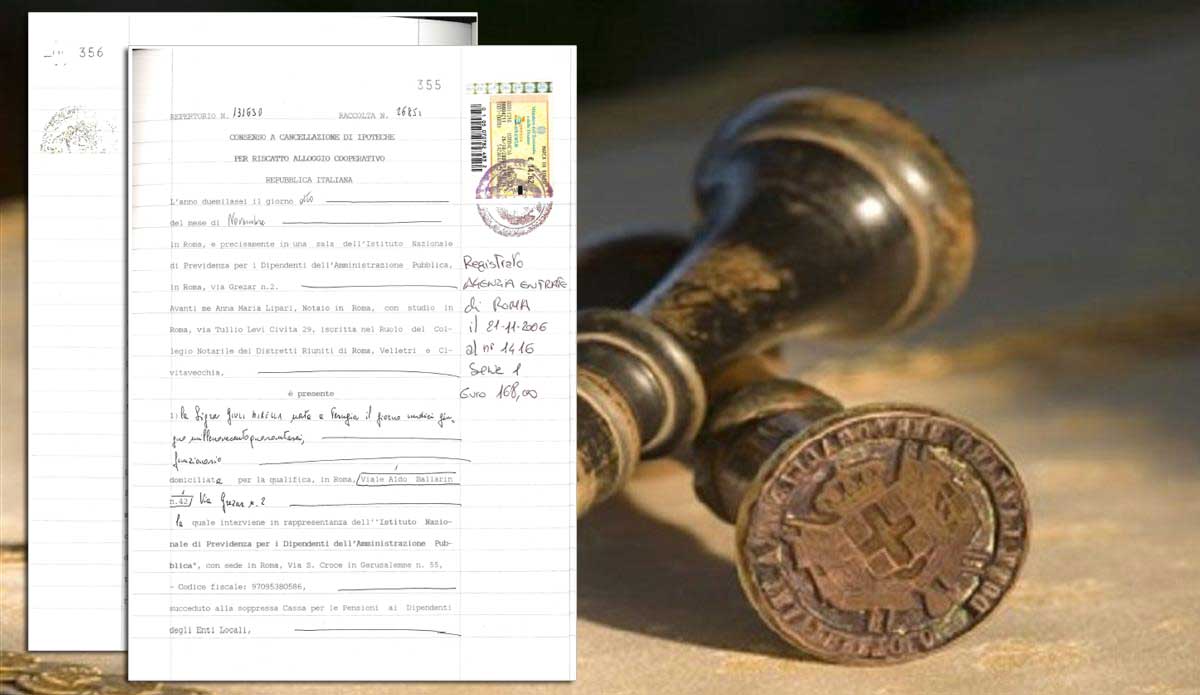 356
355
REPERTORIO N. 131630 RACCOLTA N.
CONSENSO A CANCELLAZIONE DI IPOTECHE
PER RISCATTO ALLOGGIO COOPERATIVO
REPUBBLICA ITALIANA
L'anno duemilasei il giorno otto
del mese di Novembre
in Roma, e precisamente in una sala dell'Istituto Nazionale
di Previdenza per i Dipendenti dell'Amministrazione Pubblica,
in Roma, via Grezar n.2.
Avanti me Anna Maria Lipari, Notaio in Roma, con studio in
Roma, via Tullio Levi Civita 29, iscritta nel Ruolo del Col-
legio Notarile dei Distretti Riuniti di Roma, Velletri e Ci-
vitavecchia,
è presente
1) la Sig.ra nata a Perugia il giorno undici giu-
gno millenovecentoquarantasei,
funzionario
domiciliata per la qualifica, in Roma, Viale Aldo Ballarin
n.42, Via Grezar n. 2
la quale interviene in rappresentanza dell''Istituto Nazio-
nale di Previdenza per i Dipendenti dell'Amministrazione Pub-
blica", con sede in Roma, Via S. Croce in Gerusalemme n. 55,
- Codice fiscale: 97095380586,
succeduto alla soppressa Cassa per le Pensioni ai Dipendenti
degli Enti Locali,
Registrato
AGENZIA ENTRATE
di ROMA
il 21-11-2006
al n° 1416
Serie 1
Euro 168,00